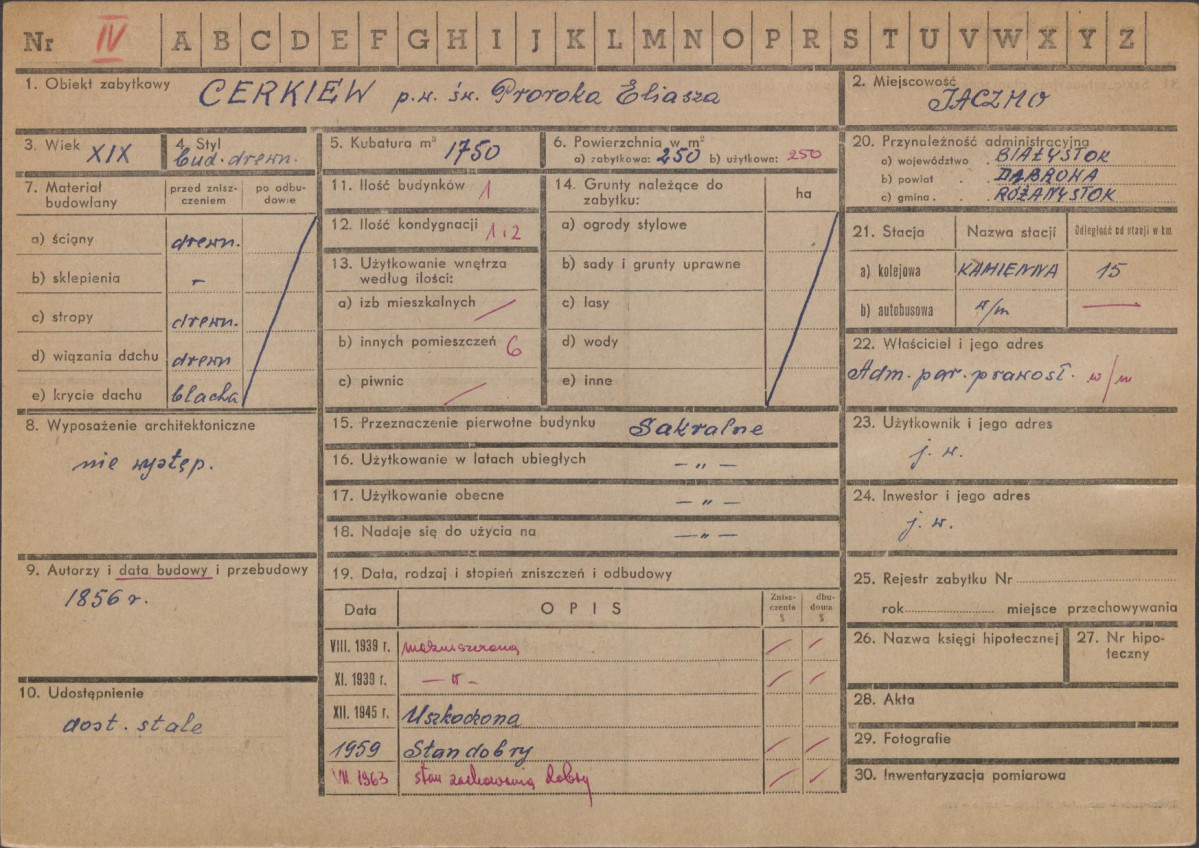 Nr IV A B C D E F G H I J K L M N O P R S T U V W X Y Z
1. Obiekt zabytkowy CERKIEW p.w. św. Proroka Eliasza
2. Miejscowość JACZNO
3. Wiek XIX
4. Styl bud. drewn.
5. Kubatura m³ 1750
6. Powierzchnia w m²
a) zabytkowa: 250 b) użytkowe: 250
7. Materiał budowlany
przed zniszczeniem
po odbudowie
a) ściany drewn.
b) sklepienia –
c) stropy drewn.
d) wiązania dachu drewn
e) krycie dachu blacha
8. Wyposażenie architektoniczne
nie występ.
9. Autorzy i data budowy i przebudowy
1856 r.
10. Udostępnienie
dost. stale
11. Ilość budynków 1
12. Ilość kondygnacji 1i2
13. Użytkowanie wnętrza
według ilości:
a) izb mieszkalnych
b) innych pomieszczeń 6
c) piwnic
14. Grunty należące do
zabytku:
ha
a) ogrody stylowe
b) sady i grunty uprawne
c) lasy
d) wody
e) inne
15. Przeznaczenie pierwotne budynku Sakralne
16. Użytkowanie w latach ubiegłych – „ –
17. Użytkowanie obecne – „ –
18. Nadaje się do użycia na – „ –
19. Data, rodzaj i stopień zniszczeń i odbudowy
Data OPIS Zniszczenia % dbudowa %
VIII. 1939 r. niezniszczona
XI. 1939 r. – „ –
XII. 1945 r. Uszkodzona
1959 Stan dobry
VII. 1963 stan zachowania dobry
20. Przynależność administracyjna
a) województwo BIAŁYSTOK
b) powiat DĄBROWA
c) gmina RÓŻANYSTOK
21. Stacja Nazwa stacji Odległość od stacji w km
a) kolejowa KAMIENNA 15
b) autobusowa w/m —
22. Właściciel i jego adres
Adm. par. prawosł. w/m
23. Użytkownik i jego adres
j. w.
24. Inwestor i jego adres
j. w.
25. Rejestr zabytku Nr
rok miejsce przechowywania
26. Nazwa księgi hipotecznej
27. Nr hipoteczny
28. Akta
29. Fotografie
30. Inwentaryzacja pomiarowa